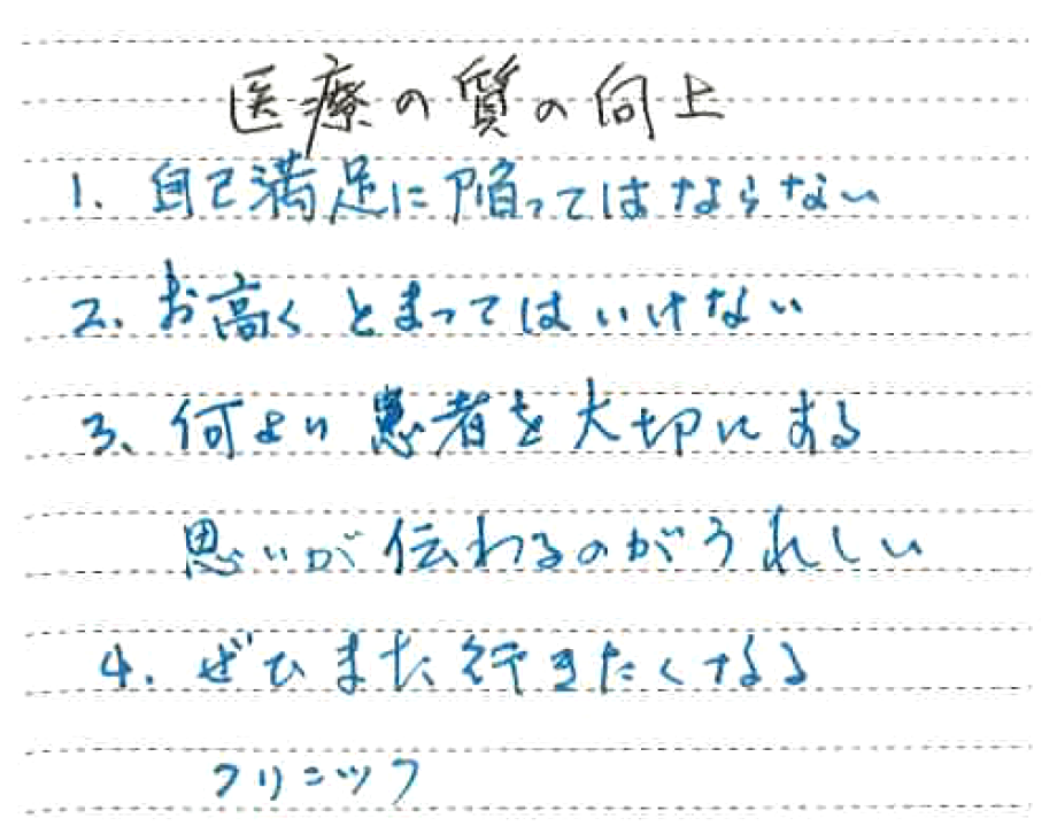 医療の質の向上
1. 自己満足に陥ってはならない
2. お高くとまってはいけない
3. 何より患者を大切にする
思いが伝わるのがうれしい
4. ぜひまた行きたくなる
クリニック